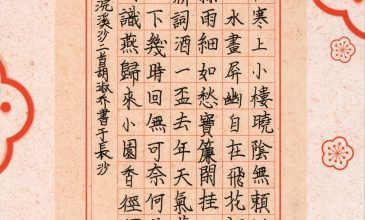 寒上小樓曉陰無賴
水畫屏幽自在飛花
絲雨細如愁寶簾閒挂
新詞酒一盃去年天氣
下幾時回無可奈何
識燕歸來小園香徑
浣溪沙二首胡淑乔書于長沙